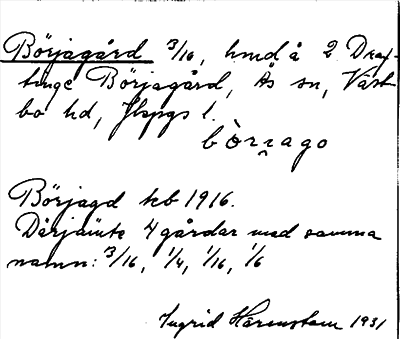 Börjagård 3/16, hmd å 2 Draf-
tinge Börjagård, Ås sn, Väst-
bo hd, Jkpgs l.
bòrɹago
Börjagd kb 1916.
Därjämte 4 gårdar med samma
namn: 3/16, 1/4, 1/16, 1/6
Ingrid Härenstam 1931